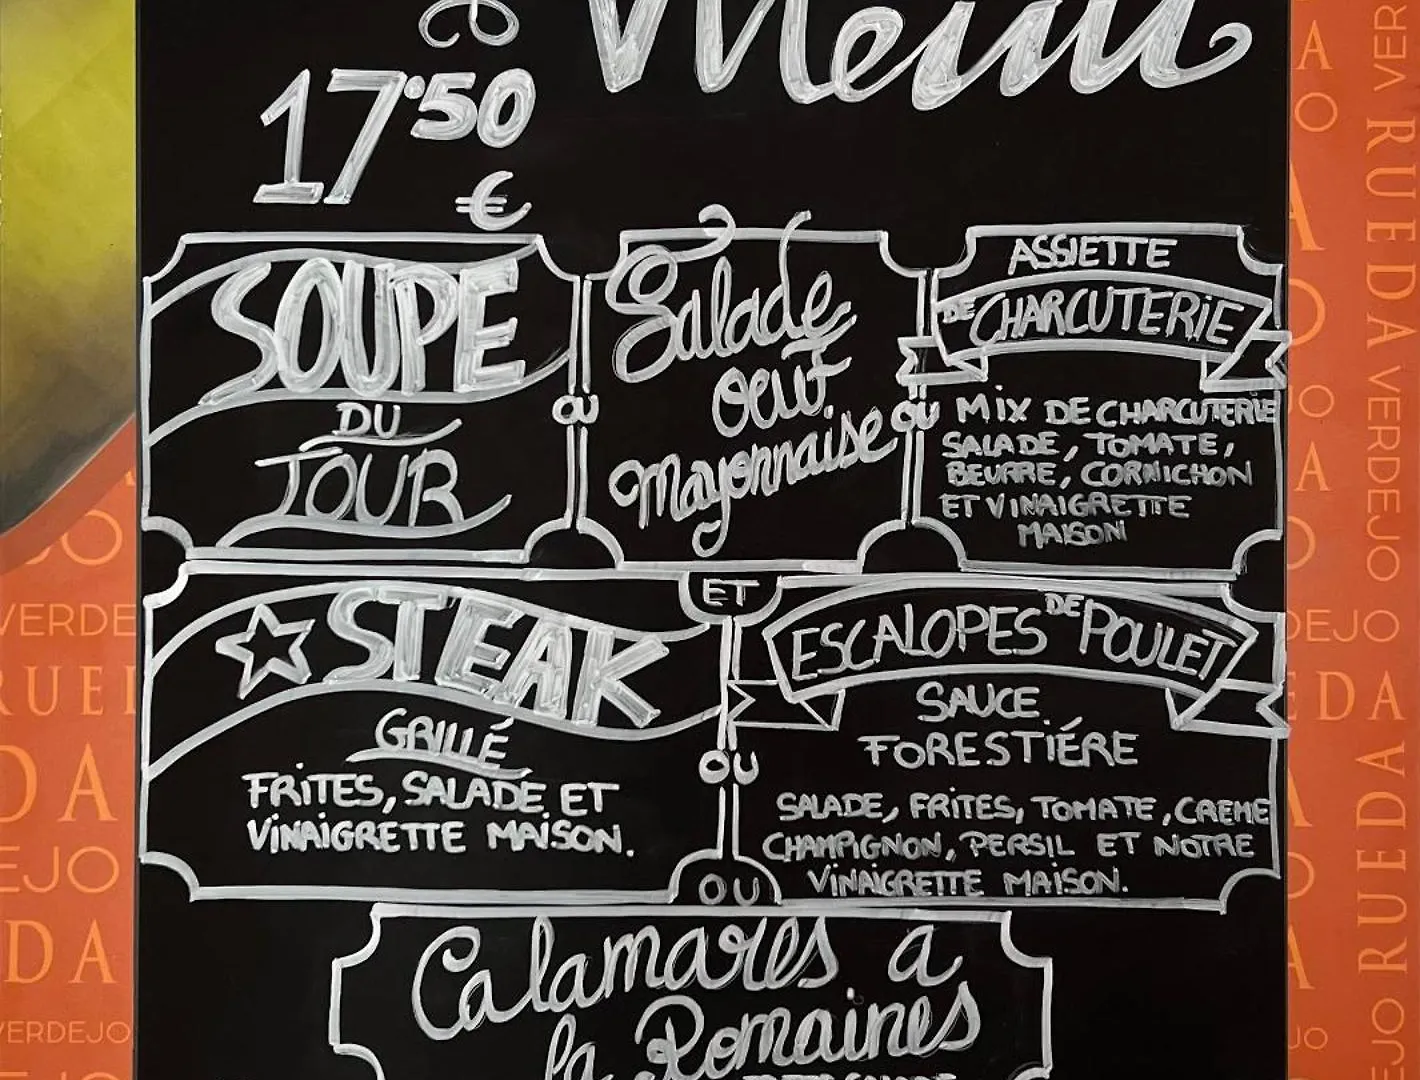 Menu
17'50
€
SOUPE
DU
JOUR
OU
Salade
oeuf
Mayonnaise
OU
ASSIETTE
DE CHARCUTERIE
MIX DE CHARCUTERIE
SALADE, TOMATE,
BEURRE, CORNICHON
ET VINAIGRETTE
MAISON
STEAK
GRILLÉ
FRITES, SALADE ET
VINAIGRETTE MAISON.
ET
OU
OU
ESCALOPES DE POULET
SAUCE
FORESTIÉRE
SALADE, FRITES, TOMATE, CREME
CHAMPIGNON, PERSIL ET NOTRE
VINAIGRETTE MAISON.
Calamares a
la Romaines
VERDEJO
RUEDA
VERDEJO
RUEDA
RUEDA
VERDEJO